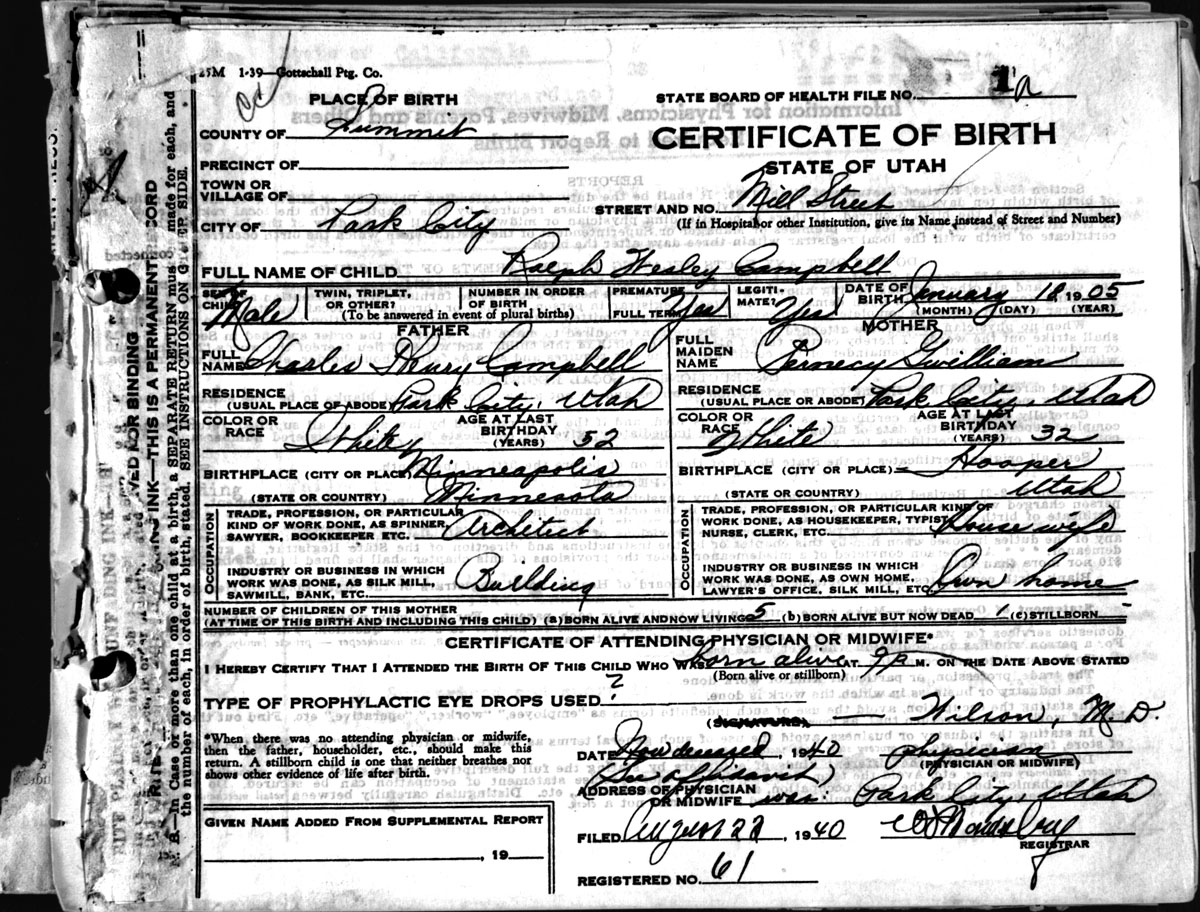 25M 1-39—Gottschall Ptg. Co.
PLACE OF BIRTH
STATE BOARD OF HEALTH FILE NO. 1
COUNTY OF Summit
CERTIFICATE OF BIRTH
PRECINCT OF
STATE OF UTAH
TOWN OR
VILLAGE OF
STREET AND NO. Mill Street
CITY OF Park City
(If in Hospital or other Institution, give its Name instead of Street and Number)
FULL NAME OF CHILD Ralph Wesley Campbell
SEX OF CHILD Male
TWIN, TRIPLET, OR OTHER?
NUMBER IN ORDER OF BIRTH
(To be answered in event of plural births)
PREMATURE
FULL TERM Yes
LEGITI-
MATE? Yes
DATE OF BIRTH January 18, 1905
(MONTH) (DAY) (YEAR)
FATHER
FULL NAME Charles Henry Campbell
RESIDENCE
(USUAL PLACE OF ABODE) Park City, Utah
COLOR OR RACE White
AGE AT LAST BIRTHDAY (YEARS) 52
BIRTHPLACE (CITY OR PLACE) Minneapolis
(STATE OR COUNTRY) Minnesota
OCCUPATION
TRADE, PROFESSION, OR PARTICULAR
KIND OF WORK DONE, AS SPINNER,
SAWYER, BOOKKEEPER ETC. Architect
INDUSTRY OR BUSINESS IN WHICH
WORK WAS DONE, AS SILK MILL,
SAWMILL, BANK, ETC. Building
MOTHER
FULL MAIDEN NAME Pernecy Gwilliam
RESIDENCE
(USUAL PLACE OR ABODE) Park City, Utah
COLOR OR RACE White
AGE AT LAST BIRTHDAY (YEARS) 32
BIRTHPLACE (CITY OR PLACE) Hooper
(STATE OR COUNTRY) Utah
OCCUPATION
TRADE, PROFESSION, OR PARTICULAR KIND OF
WORK DONE, AS HOUSEKEEPER, TYPIST
NURSE, CLERK, ETC. Housewife
INDUSTRY OR BUSINESS IN WHICH
WORK WAS DONE, AS OWN HOME,
LAWYER'S OFFICE, SILK MILL, ETC. Own home
NUMBER OF CHILDREN OF THIS MOTHER
(AT TIME OF THIS BIRTH AND INCLUDING THIS CHILD) (a) BORN ALIVE AND NOW LIVING 5 (b) BORN ALIVE BUT NOW DEAD 1 (c) STILLBORN -
CERTIFICATE OF ATTENDING PHYSICIAN OR MIDWIFE*
I HEREBY CERTIFY THAT I ATTENDED THE BIRTH OF THIS CHILD WHO WAS born alive AT 9 P M. ON THE DATE ABOVE STATED
(Born alive or stillborn)
TYPE OF PROPHYLACTIC EYE DROPS USED ?
(SIGNATURE) — Wilson, M.D.
*When there was no attending physician or midwife,
then the father, householder, etc., should make this
return. A stillborn child is one that neither breathes nor
shows other evidence of life after birth.
DATE Now deceased, 1940 physician
(PHYSICIAN OR MIDWIFE)
See affidavit)
ADDRESS OF PHYSICIAN
OR MIDWIFE was: Park City, Utah
GIVEN NAME ADDED FROM SUPPLEMENTAL REPORT
, 19
FILED August 22, 1940
REGISTRAR
REGISTERED NO. 61